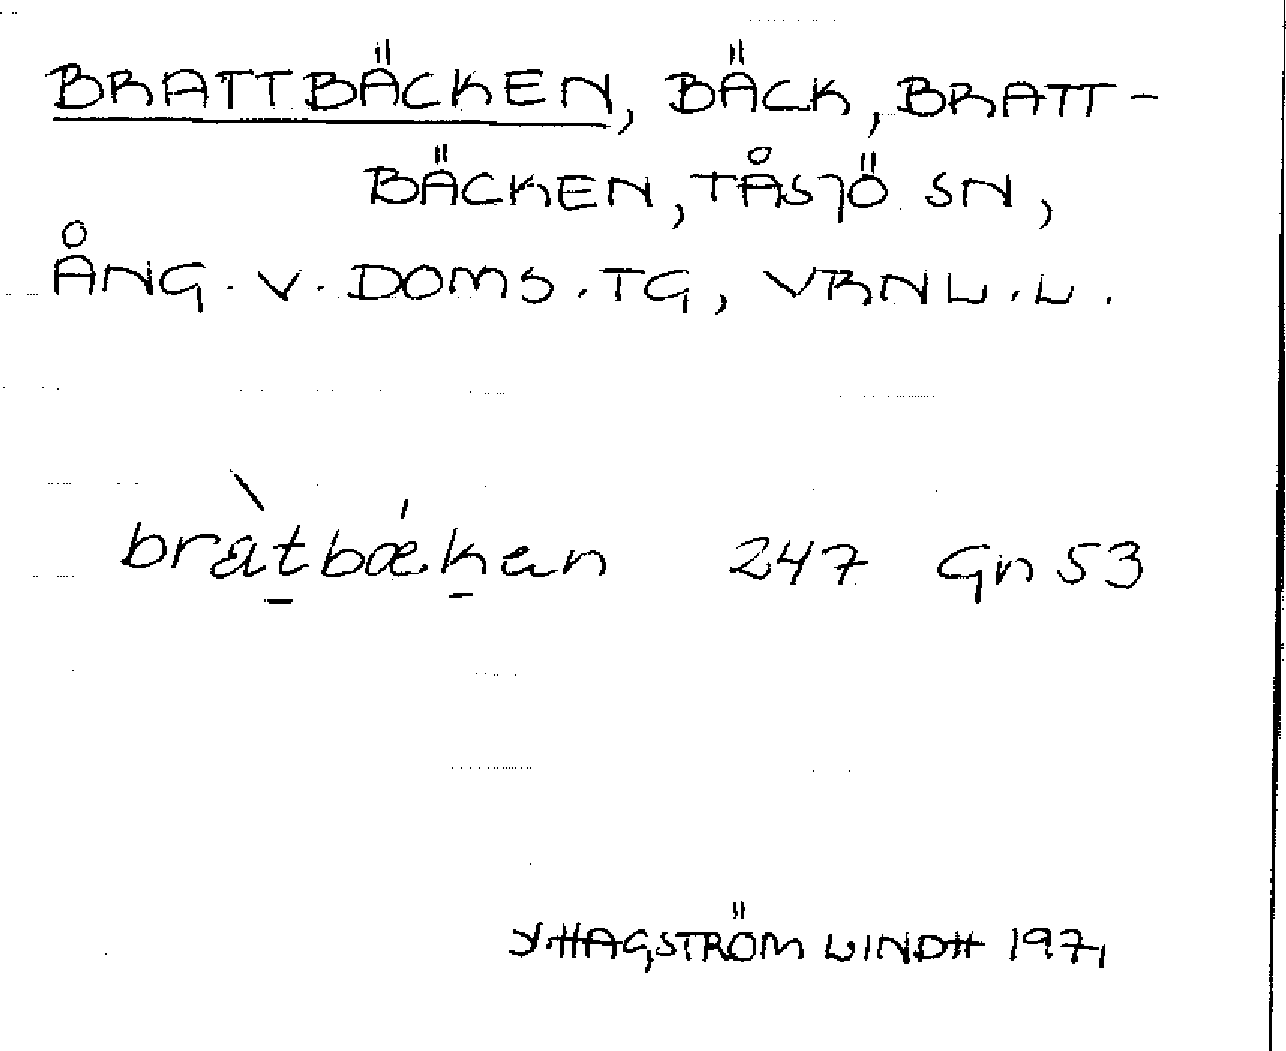 BRATTBÄCKEN, BÄCK, BRATT-
BÄCKEN, TÅSJÖ SN,
ÅNG. V. DOMS. TG, VRNL. L.
bràtbækan 247 Gn 53
Y. HAGSTRÖM LINDH 1971